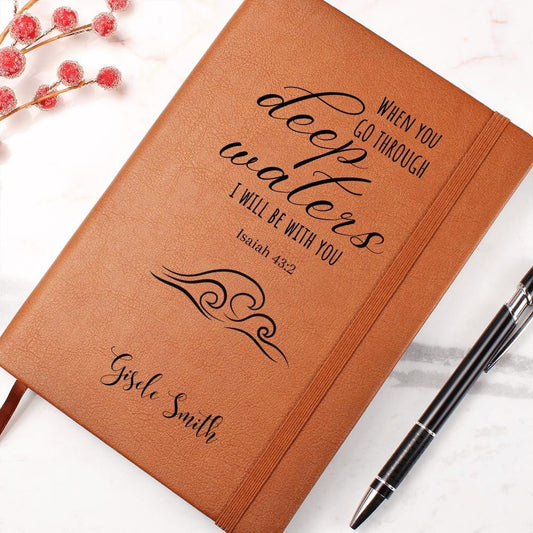 WHEN YOU
GO THROUGH
deep
waters
I WILL BE WITH YOU
Isaiah 43:2
Gisele Smith